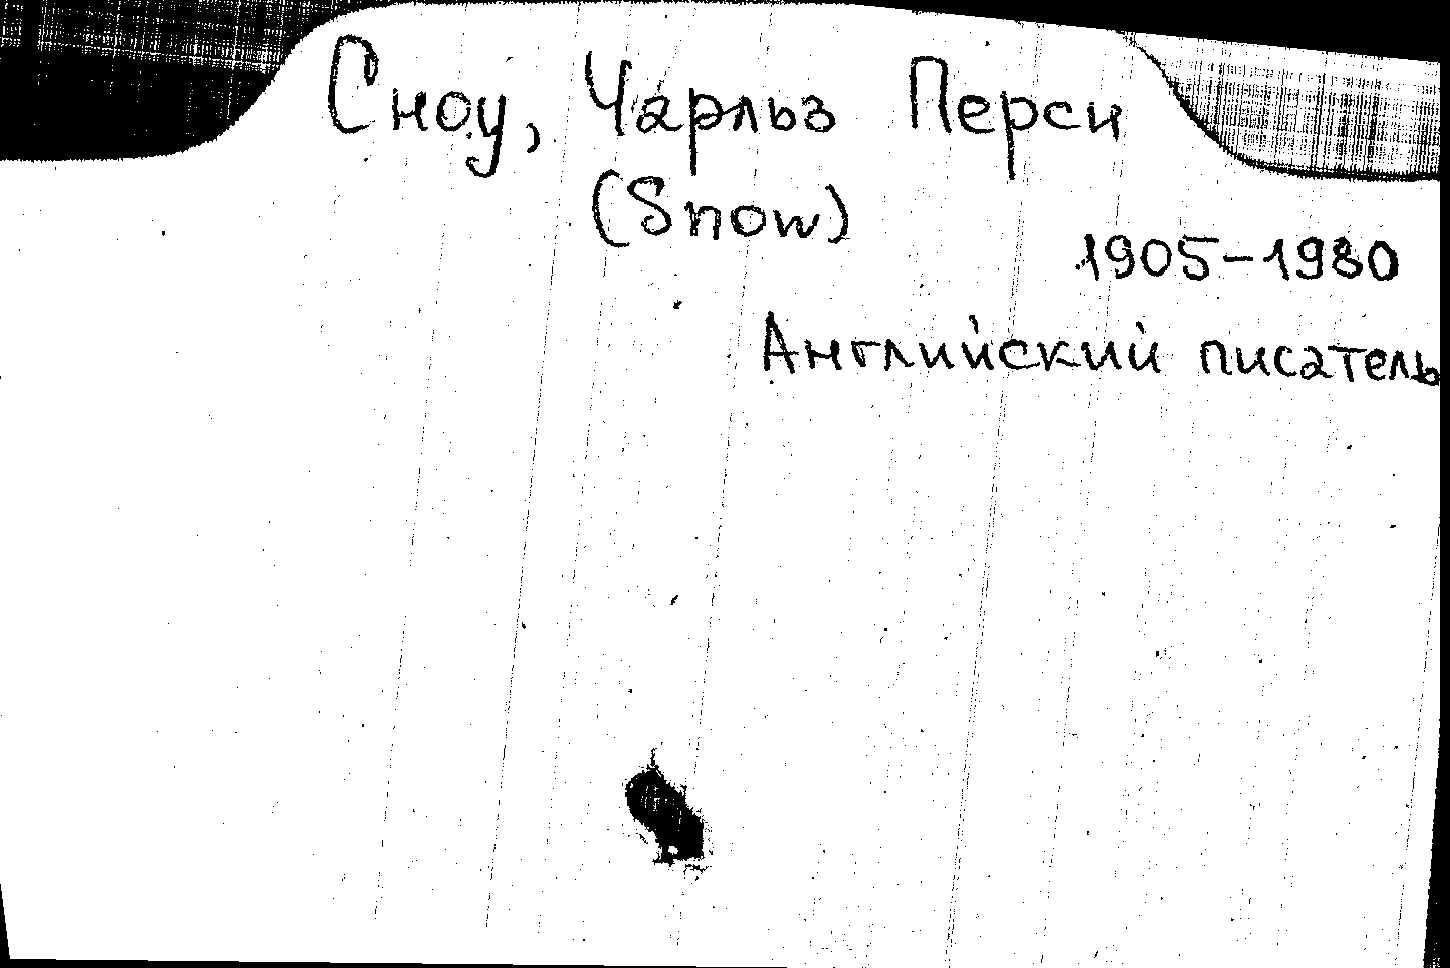 Сноу, Чарльз Перси
(Snow)
1905-1980
Английский писатель